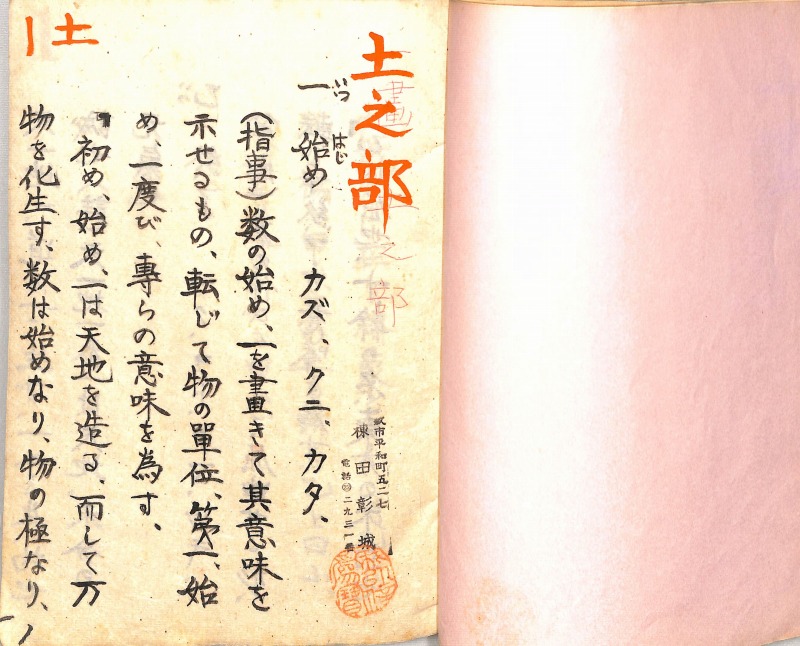 土之部
畫之部
一 始め カズ、クニ、カタ、
いつ はじ
(指事)数の始め、一を畫きて其意味を
示せるもの、転じて物の單位、第一、始
め、一度び、專らの意味を為す、
初め、始め、一は天地を造る、而して万
物を化生す、数は始めなり、物の極なり、
土
一
市平和町五二七
棟田彰城
電話 二九三一番